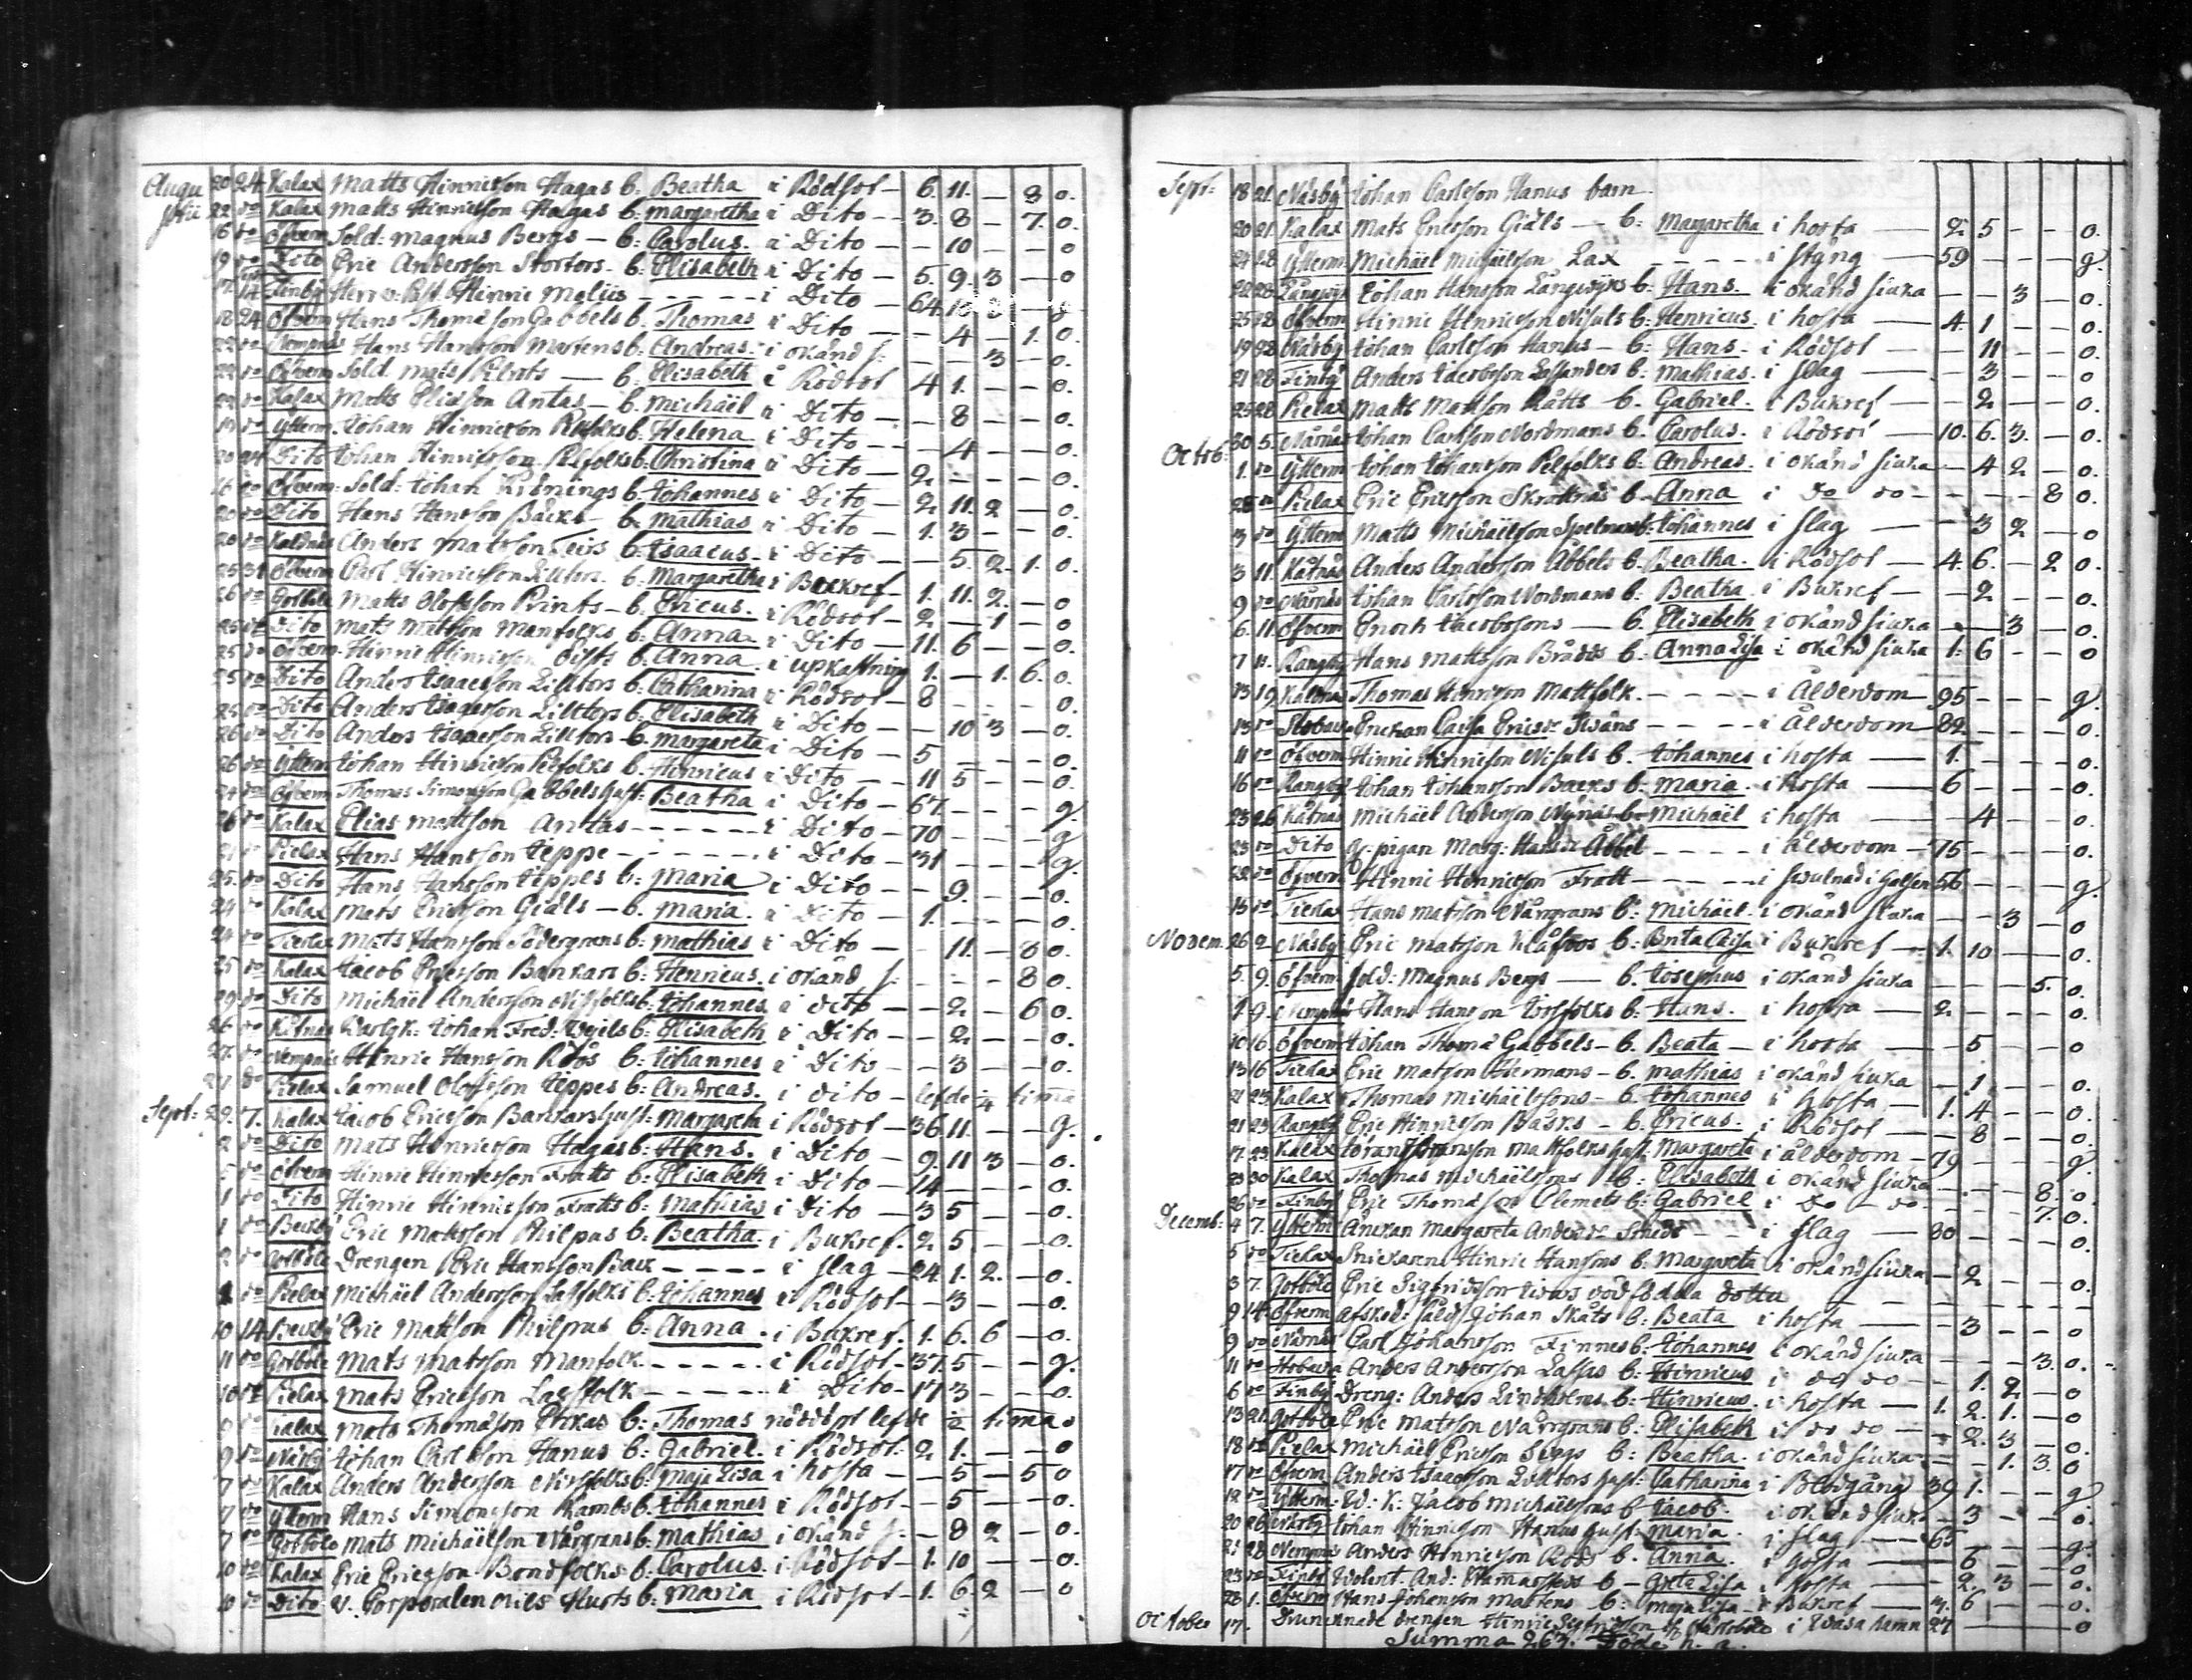 Augu 20 24 Kalax Matts Hinricsson Hagas b: Beatha i Rödsot – 6. 11. – 3 o.
22 do Kalax Matts Hinricsson Hagas b: Margaretha i Dito – 3. 8 – 7. o.
16 do Öfverm Sold: Magnus Bergs – b: Carolus. i Dito – – 10 – – o
19 do Dito Eric Andersson Stortors. b: Elisabeth i Dito – 5. 9. 3 – o
Finby Herr v: Past. Hinric – – – i Dito – 64.
18 24 Öfverm Hans Thomasson Gabbels b. Thomas i Dito – – 4 – 1. o.
22 do Nempnäs Hans Hansson Martens b: Andreas. i okänd s: – – 3 – o.
22 do Öfverm Sold. Mats – b: Elisabeth i Rödsot 4 1. – – o.
22 do Kalax Matts Eliasson Antas – b. Michäel i Dito – – 8 – – o.
Ytterm. Johan Hinricsson Pelfolks b: Helena i Dito – – 4 – – o.
20 24 Dito Johan Hinricsson Pelfolks b: Christina i Dito – 2 – – – o.
16 do Öfverm: Sold: Johan b. Johannes i Dito – 2 11. 2 – o.
20 do Dito Hans Hansson Backs – b. Mathias i Dito – 1. 3 – – o.
20 do Kaldnäs Anders Matsson Teirs b: Isaacus – i Dito – – 5. 2. 1. o.
25 31 Öfverm Carl Hinricsson b: Margaretha i Bukref – 1. 11. 2. – o
26 do Gotböle Matts Olofsson Prints – b. Ericus. i Rödsot – 2 – 1 – o.
25 do Dito Mats Mattson Manfolks b: Anna i Dito – 11 6 – – o.
25 do Öfverm. Hinric Hinricsson b: Anna. i upkastning 1. – 1. 6. o.
25 do Dito Anders Isaacsson b: Catharina i Rödsot – 8 – – – o.
25 do Dito Anders Isaacsson b: Elisabeth i Dito – – 10 3 – o.
26 do Dito Anders Isaacsson b. Margareta i Dito – 5 – – – o.
26 do Ytterm Johan Hinricsson Pelfolks b. Hinricus i Dito – 11 5 – – o.
24 do Öfverm Thomas Simonsson Gabbels hust: Beatha i Dito – 67. – – – g.
26 do Kalax Elias Mattson Antas – – – i Dito – 70 – – – g
21 do Pielax Hans Hansson Jeppe – – – i Dito – 31 – – – g.
25. do Dito Hans Hansson Jeppes b: Maria i Dito – – 9. – – o.
24 do Kalax Mats Ericsson Giäls – b. Maria. i Dito – 1. – – – o.
24 do Tieklax Mats Hansson Södergrans b: Mathias i Dito – – 11. – 8 o.
25 do Kalax Jacob Ericsson Bankars b: Henricus. i okänd s: – – – 8 o.
29 do Dito Michäel Andersson Nissfolks b: Johannes i dito – – 2 – 6 o.
26 do Kåtnäs Johan Fred: b: Elisabeth i Dito – – 2 – – o.
27. do Nempnäs Hinric Hansson Röös b: Johannes i Dito – – 3 – – o.
27 do Pielax Samuel Olofsson Jeppes b: Andreas. i dito – lefde ¼ tima
Sept: 29. 7. Kalax Jacob Ericsson Bankars hust: Margareta i Rödsot – 36. 11. – – g.
2 do Dito Mats Hinricsson Hagas b: Hans. i Dito – 9. 11 3 – o.
5 do Öfverm Hinric Hinricsson Fratts b: Elisabeth i Dito – 14 – – – o.
1 do Dito Hinric Hinricsson Fratts b: Mathias i Dito – 3 5 – – o.
1 do Beckby Eric Matsson Philpus b: Beatha. i Bukref. 2 5 – – o.
2 do Gotböle Drengen Eric Hansson Back – – – i slag – 24. 1. 2. – o.
do Pielax Michäel Andersson Lassfolks b: Johannes i Rödsot – – 3 – – o.
10 14 Beckby Eric Mattson Philpus b: Anna. i Bukref. 1. 6. 6 – o.
11 do Gotböle Mats Matsson Manfolk – – – i Rödsot – 37. 5 – – g.
10 do Pielax Mats Ericsson Lassfolk – – – i Dito – 17 3 – – o.
do Kalax Mats Thomasson b: Thomas nöddöpt lefde ½ tima o
9 do Näsby Johan Carlsson Hanus b: Gabriel. i Rödsot. 2 1. – – o
7 do Kalax Anders Andersson Nissfolks b: Maja Lisa i hosta – – 5 – 5 o
7 do Ytterm Hans Simonsson b. Johannes i Rödsot – – 5 – – o.
7 do Gotböle Mats Michäelsson Nårgrans b: Mathias i okänd s: – 8 2 – o.
10 do Kalax Eric Ericsson Bondfolks b: Carolus. i Rödsot – 1. 10 – – o.
10 do Dito v. Corporalen Nils Hurts b: Maria i Rödsot – 1. 6 2 – o
Sept: 18 21. Näsby Johan Carlsson Hanus barn
20 21. Kalax Mats Ericsson Giäls – b: Margaretha i hosta – 2 5 – – o.
24 28 Ytterm Michäel Michäelsson Lax – – – i styng – 59 – – – g.
22 28 Långvijk Johan Hansson Långwijks b: Hans. i okänd siuka – – 3 – o.
25 28 Öfverm Hinric Henricsson Nisuls b: Henricus. i hosta – 4. 1 – – o.
19 28 Näsby Johan Carlsson Hanus – b: Hans. i Rödsot – – 11 – – o.
21 28 Finby Anders Jacobsson Lassanders b: Mathias. i slag – – 3 – – o
25 28 Pielax Matts Mattson b. Gabriel. i Bukref – – 2 – – o.
Octob: 30 5. Nämnäs Johan Carlsson Nordmans b. Carolus. i Rödsot – 10. 6. 3. – o.
1. do Ytterm Johan Johansson Pelfolks b: Andreas. i okänd siuka – 4 2 – o.
28 do Pielax Eric Ericsson b. Anna i do do – – – – 8 o.
3 do Ytterm Matts Michäelsson Spelmans b: Johannes i slag – – 3 2 – o
3 11. Kåtnäs Anders Andersson Åbbels b. Beatha. i Rödsot – 4. 6. – 2 o.
9 do Nämnäs Johan Carlsson Nordmans b. Beatha. i Bukref – – 2 – – o.
6. 11. Öfverm Enoch Jacobssons – b. Elisabeth i okänd siuka – – 3 – o.
7 11. Rangsby Hans Mattsson b. Anna Lisa i okänd siuka 1. 6 – – o
13 19. Kaldnäs Thomas Hinricson Mattfolk. – – – i Ålderdom – 95 – – – g.
13 do Enckan Caisa Ericsdr – – – i Ålderdom – 82. – – – o.
11 do Öfverm Hinric Hinricson Nisuls b. Johannes i hosta – 1. – – – o.
16 do Rangsby Johan Johansson Backs b. Maria. i Hosta – 6 – – – o.
23 26 Kåtnäs Michäel Andersson b – Michäel i hosta – – 4 – – o.
23 do Dito g: pigan Marg: Hansdr Åbbel – – – i Ålderdom – 75 – – – o.
22 do Öfverm Hinric Henricsson Fratt – – – i svulnad i halsen 56 – – – g.
15 do Tieklax Hans Matsson Nårgrans b: Michäel. i okänd siuka – – 3 – o
Novem. 26 2 Näsby Eric Matsson Klåfoos b: Brita Caisa i Bukref – 1. 10 – – o.
5. 9. Öfverm Sold: Magnus Bergs – b. Josephus i okänd siuka – – – 5. o.
1. 9. Nempnäs Hans Hansson b: Hans. i hosta – 2. – – – o.
10 16 Öfverm Johan Thoma Gabbels – b. Beata – i hosta – – 5 – – o
13 16 Tieklax Eric Matson b. Mathias i okänd siuka – 1. – – o.
21 23 Kalax Thomas Michäelssons – b. Johannes i hosta – 1. 4 – – o.
21 23 Rangsby Eric Hinricsson Båsks – b. Ericus. i Rödsot – – 8 – – o.
17. 23 Kalax Mattfolks hust: Margareta i ålderdom – 79 – – – g.
23 30 Kalax Thomas Michäelssons b: Elisabeth i okänd siuka – – – 8. o
26 do Finby Eric Thomasson Clemets b: Gabriel i do – do – – – – 7. o.
Decemb: 4 7. Ytterm Änckan Margareta Andersdr – – i slag – 80 – – – o.
5 do Tieklax Snickaren Hinric Hanssons b. Margareta i okänd siuka – 2 – – o.
3 7. Gotböle Eric Sigfridsson död födda dotter – – – – –
9 14. Öfverm afsked: Sold: Johan Skåts b: Beata i hosta – – 3 – – o
9 do Nämnäs Carl Johansson Finnes b: Johannes i okänd siuka – – – 3. o.
11 do Anders Andersson Lassas b: Hinricus i do do – – 1. 2 – o
6 do Finby Dreng: Anders Lindholms b: Hinricus. i hosta – 1. 2. 1. – o
13 21. Gotböle Eric Matsson Nårrgrans b: Elisabeth i do do – – 2. 3 – o.
18 do Pielax Michäel Ericsson b: Beatha. i okänd siuka – – 1. 3. o
17 do Öfverm Anders Isaacsson hust: Catharina i Blodgång 39 1. – – g
12 do Ytterm: Jacob Michäelssons b Jacob. i okänd siuka – 3 – – o.
20 26 Näsby Johan Hinricsson Hanus hust: Maria. i slag – 65 – – – g.
21 28 Nempnäs Anders Hinricsson Röös b. Anna. i hosta – – 6 – – o
23 do Finby Volont. And: b – Greta Lisa i hosta – – 2. 3 – o.
28 1. Öfverm Hans Johansson Martens b: Maja Lisa – i Bukref – 6 – – o.
October 17. Druncknade drengen Hinric Sigfridsson i Wasa hamn 27 – – – o
Summa 263. Döde